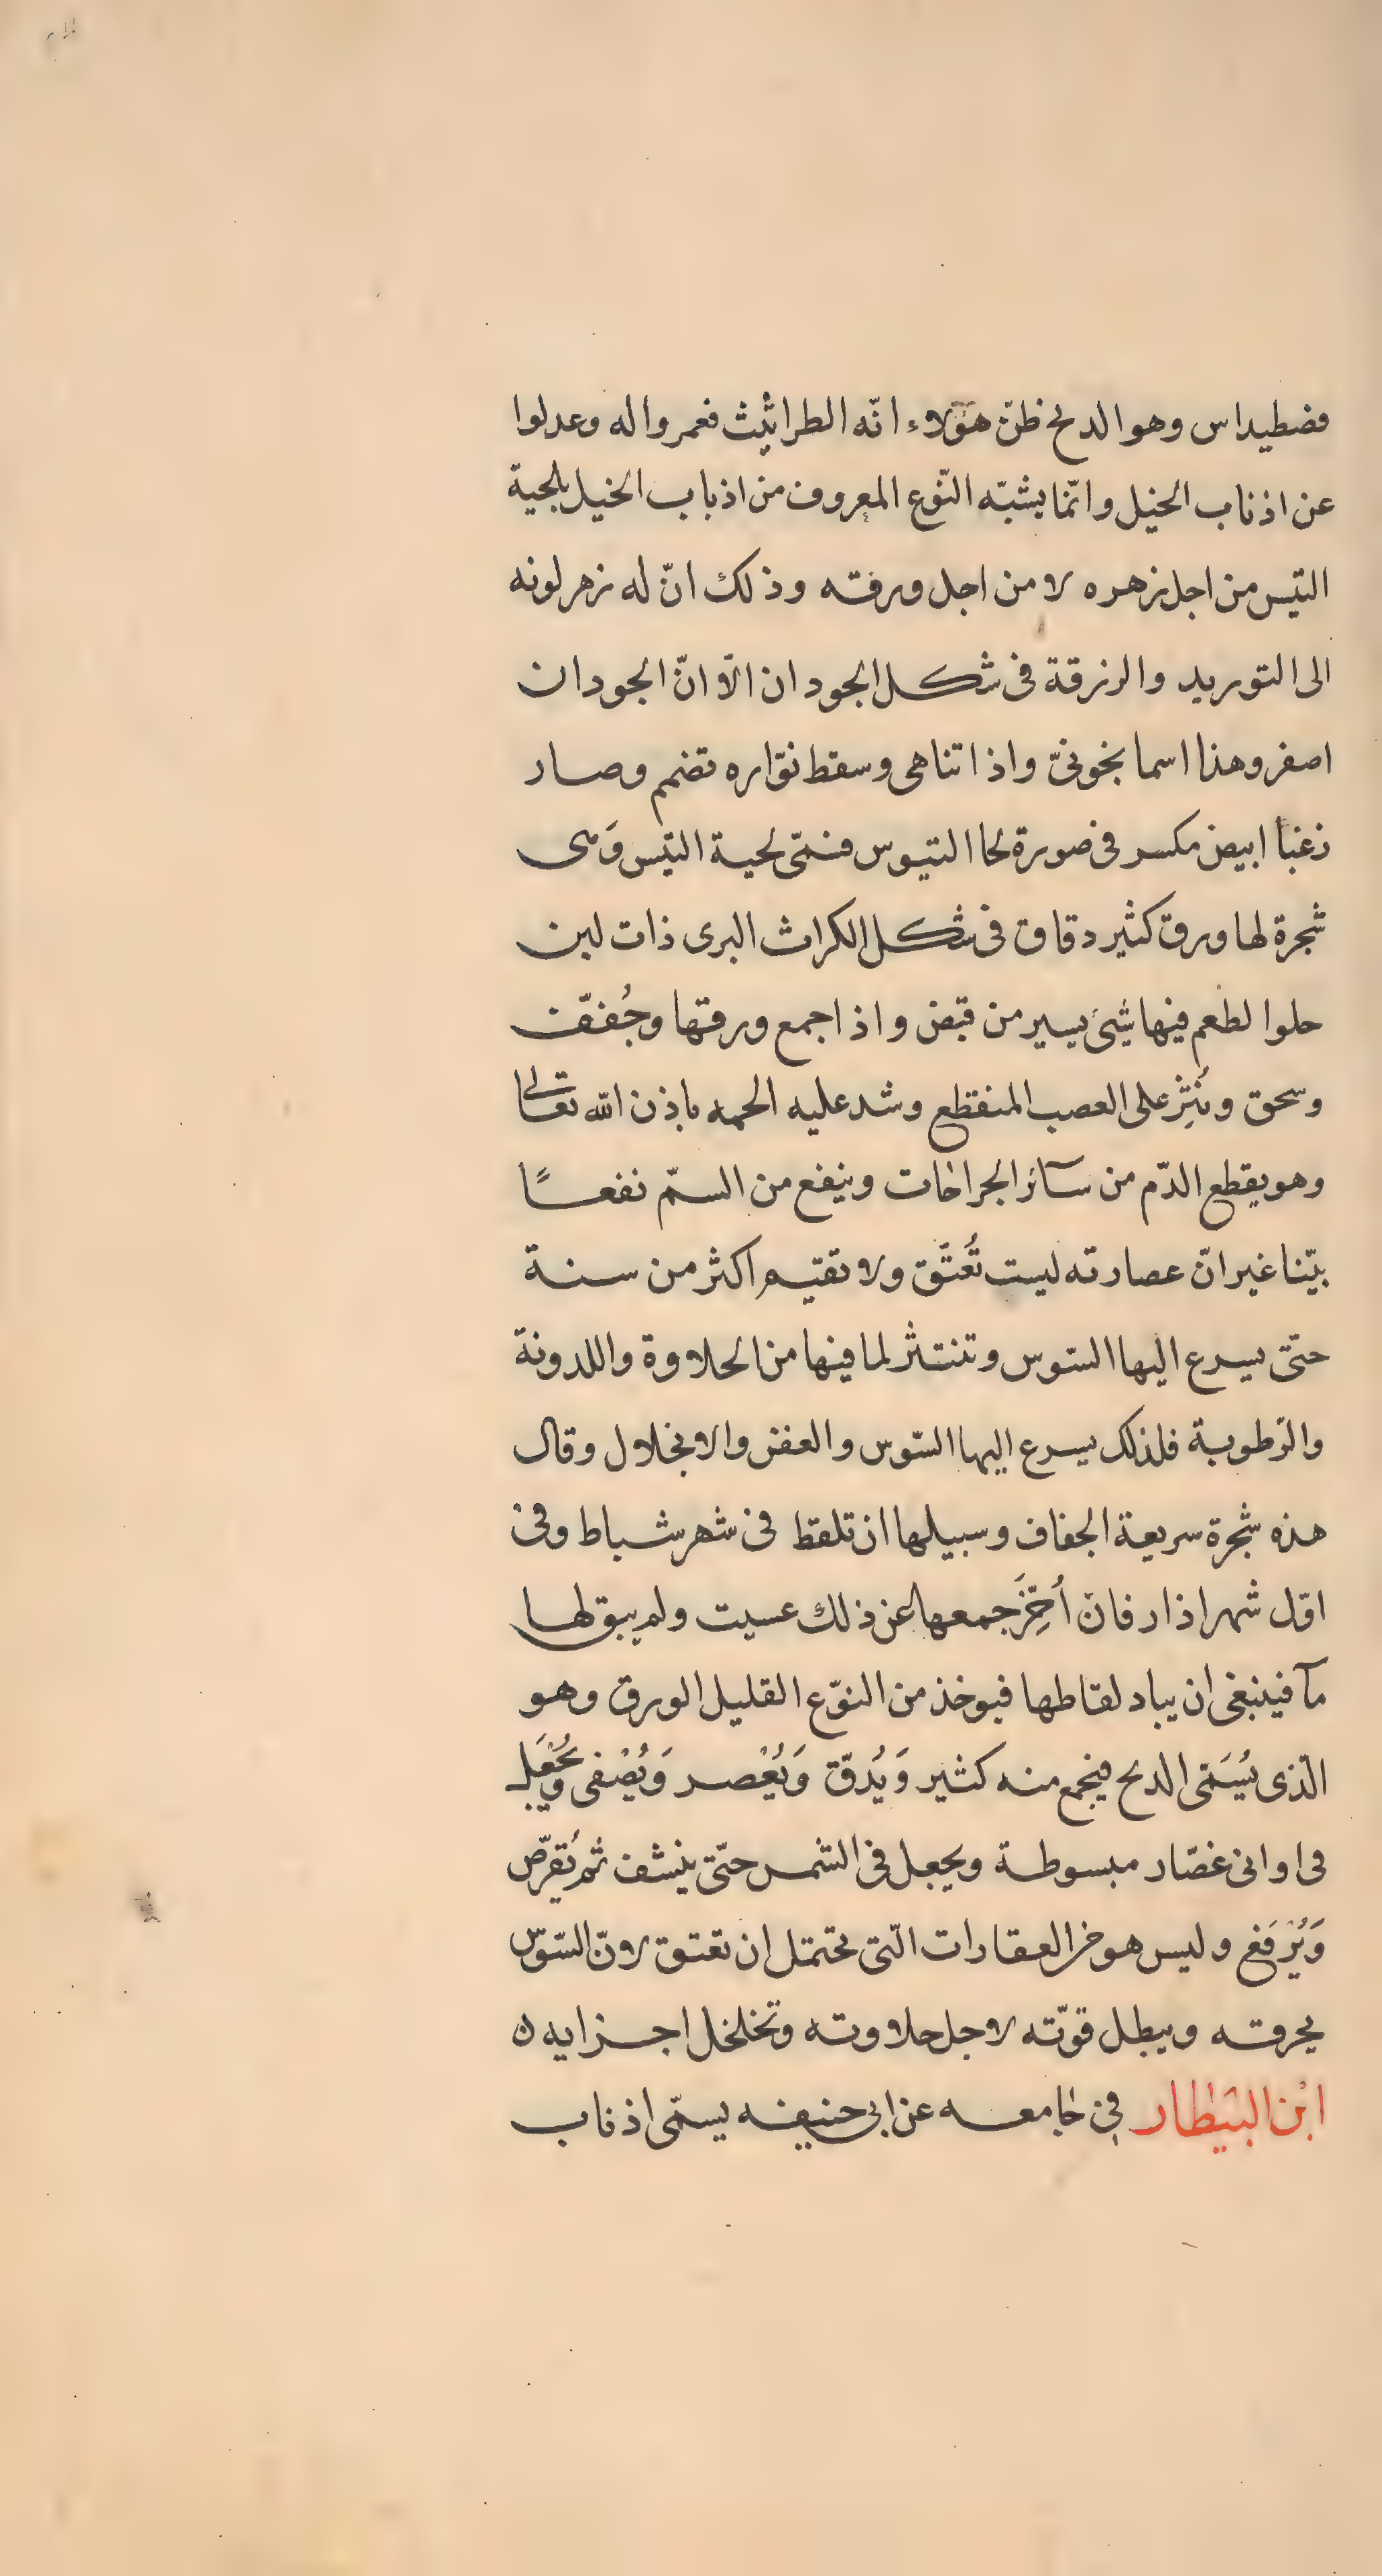 فضطيداس وهو الدلح ظنّ هؤلاء انّه الطراثيث فعمروا له وعدلوا
عن اذناب الخيل وانّما يشبّه النّوع المعروف من اذباب الخيل بلحية
التيّس من اجل زهره لا من اجل ورقته وذلك انّ له زهر لونه
الى التوريد والزرقة فى شكل الجودان الّا انّ الجودان
اصفر وهذا اسمانجونىّ واذا تناهى وسقط نوّاره تضمم وصار
زغبا ابيض مكسر فى صورة لحا التيوس فسمّى لحية التيّس وَهى
شجرة لها ورق كثير دقاق فى شكل الكراث البرى ذات لبن
حلوا لطعم فيها شئ يسير من قبض واذا جمع ورقتها وجُففّت
وسحق ونُثِر على العصب المنقطع وشد عليه الحمه باذن الله تعالى
وهو يقطع الدّم من سآئر الجراحات وينفع من السمّ نفعًا
بيّنا غير انّ عصارته ليست تُعتّق ولا تقيم اكثر من سنة
حتّى يسرع اليها السّوس وتنتثر لما فيها من الحلاوة واللدونة
والرّطوبة فلذلك يسرع اليها السّوس والعفن والانحلال وقال
هذه شجرة سريعة الجفاف وسبيلها ان تلقط فى شهر شباط وفى
اوّل شهر اذار فان أُخِّرَ جمعها عن ذلك عسيت ولم يبق لها
مآ فينبغى ان يباد لقاطها فيوخذ من النوّع القليل الورق وهو
الّذى يُسَمّى الدلح فيجمع منه كثير وَيُدقّ وَيُعْصر وَيُصْفى وَيُجْعَل
فى اوانى غضّار مبسوطة ويجعل فى الشمس حتّى ينشف ثم يُقرّص
وَيُرْفَع وليس هو من العقارات الّتى تحتمل ان تعتق لانّ السّوّس
يحرقه ويبطل قوّته لاجل حلاوته وتخلخل اجزايه ن
ابْن البَيْطار فى جامعه عن ابى حنيفه يسمّى اذناب